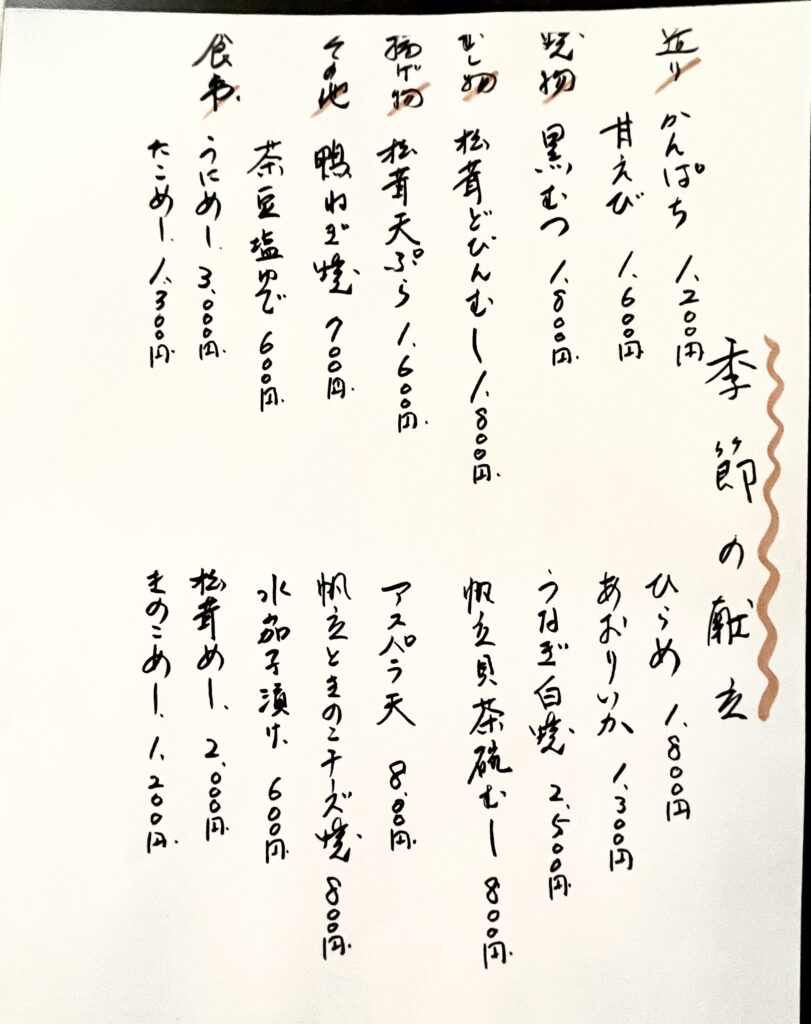 季節の献立
造り かんぱち 1.200円 ひらめ 1.800円
甘えび 1.600円 あおりいか 1.300円
焼物 黒むつ 1.800円 うなぎ白焼 2.500円
むし物 松茸どびんむし 1.800円 帆立貝茶碗むし 800円
揚げ物 松茸天ぷら 1.600円 アスパラ天 800円
その他 鴨ねぎ焼 900円 帆立ときのこチーズ焼 800円
茶豆塩ゆで 600円 水茄子漬け 600円
食事 うにめし 3.000円 松茸めし 2.000円
たこめし 1.300円 きのこめし 1.200円